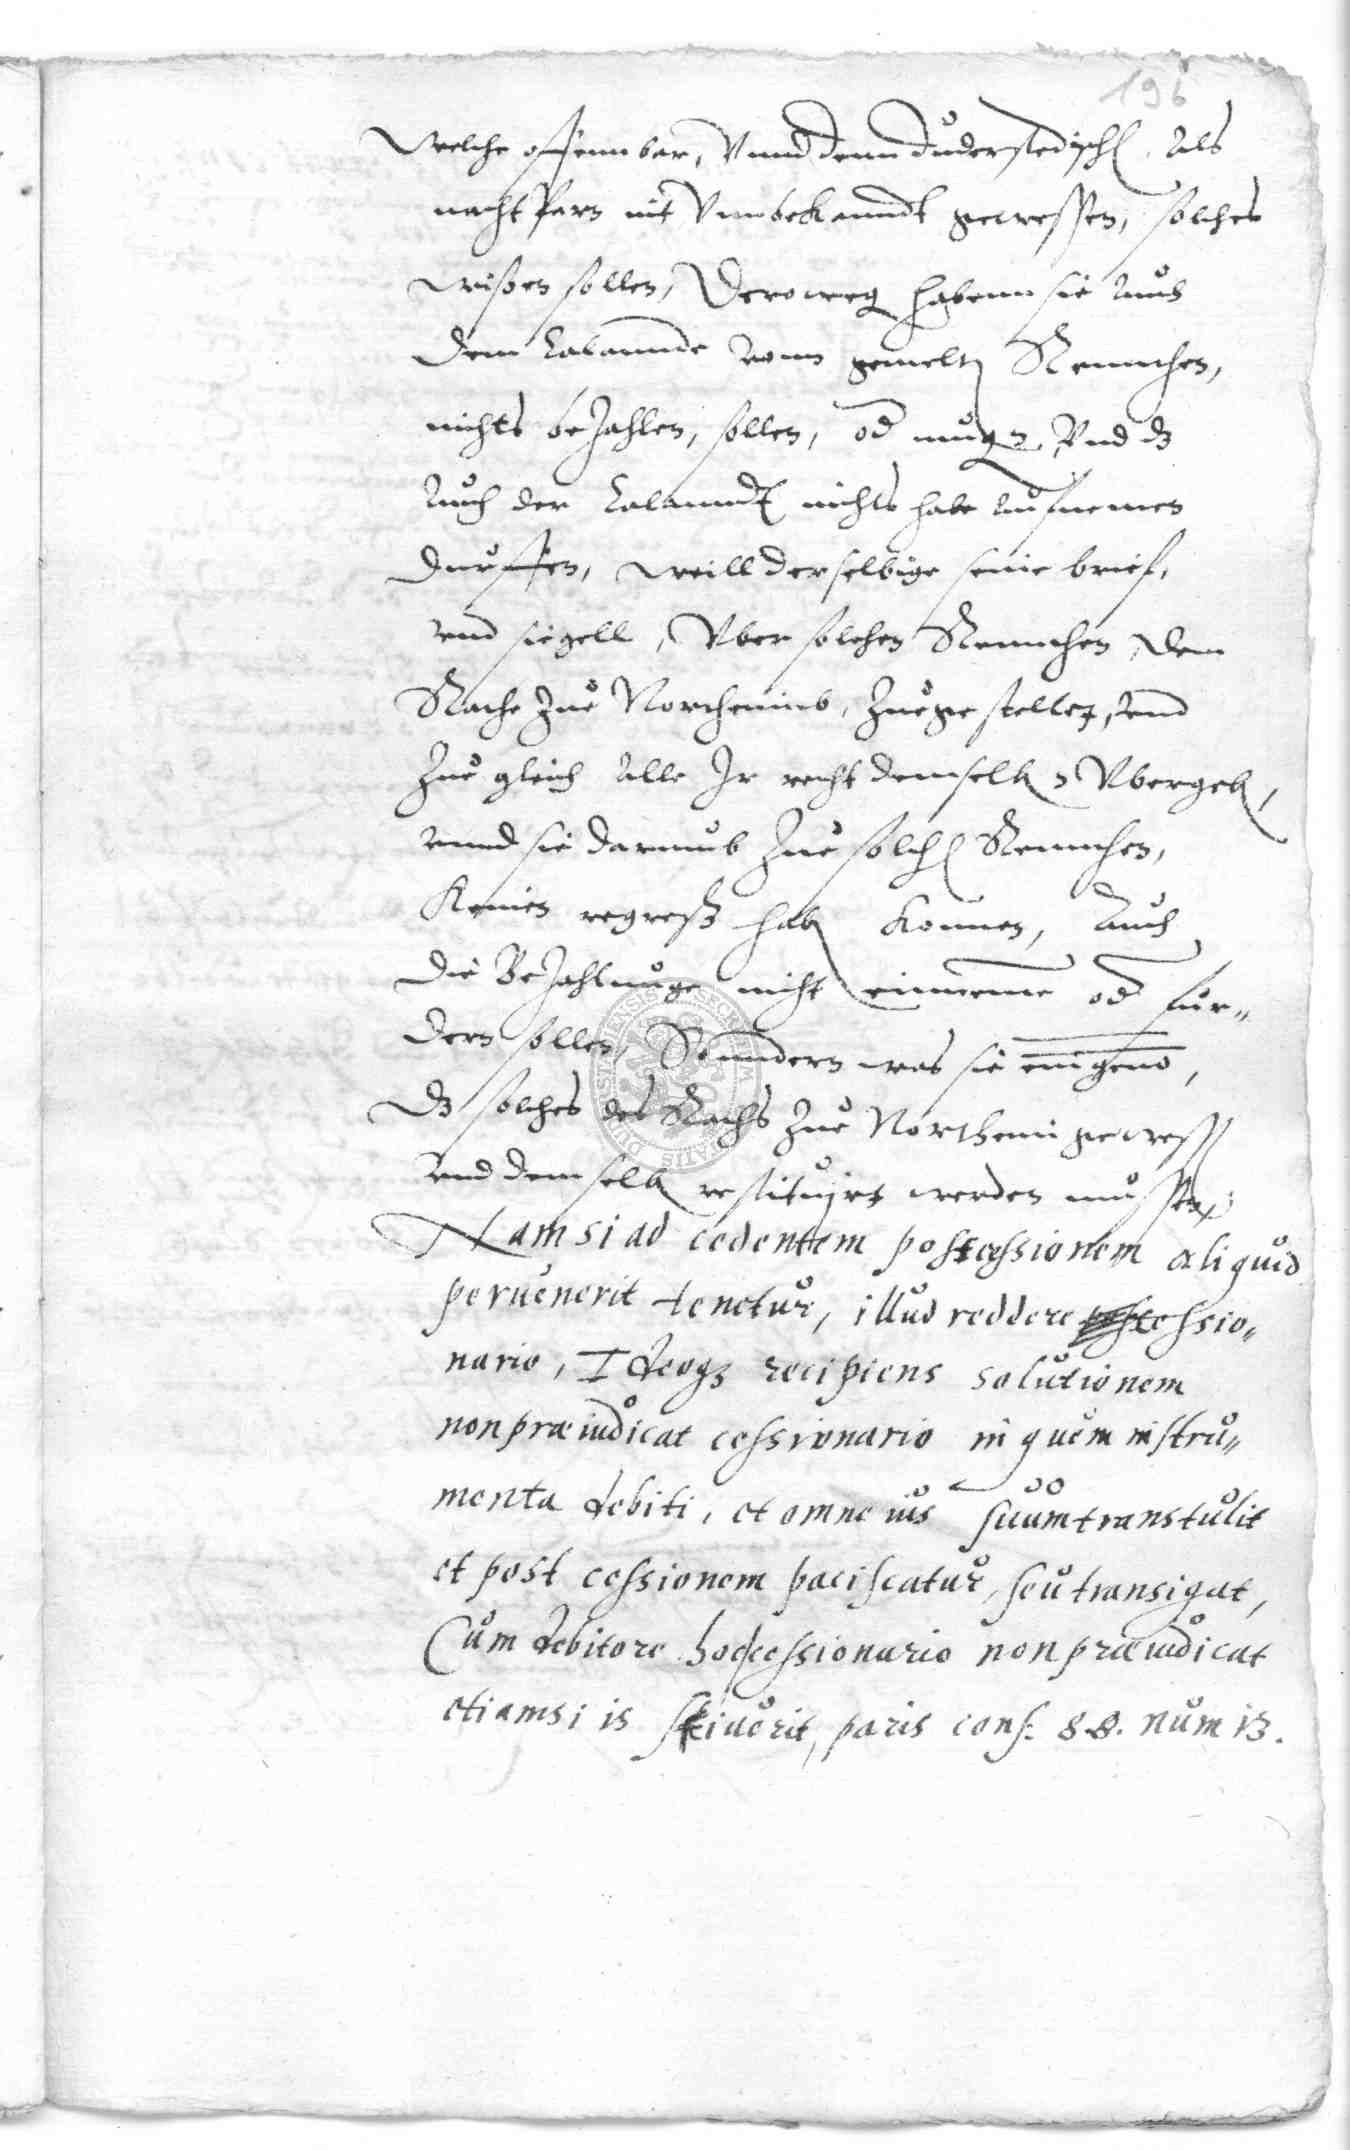 196
welche offennbar, Vnnd denn duderstedisch[en], Als
nachtparn nit Vnnbekanndt gewessen, solches
wissen sollen, Deroweg habenn sie Auch
dem Calannde vonn gemelt[en] Rennthen,
nichts beZahlen, sollen, od mug[en], Vnd dz
Auch der Calanndt nichts habe Aufnemen
durffen, weill derselbige seine brief,
vnd siegell, Vber solchen Rennthen, dem
Rathe Zue Northeimb, Zuegestellet, vnd
Zue gleich Alle Ir recht demselb[en] Vbergeb[en],
vnnd sie darumb Zue solch[en] Rennthen,
Keinen regreß hab[en] Konnen, Auch
die BeZahlunge nicht einneme od fur„
dern sollen, Sonndern was sie eingeno,
dz solches des Raths Zue Northeim gewess[en]
vnd demselb[en] restituirt werden mussen,
Nam si ad cedentem possessionem aliquid
peruenerit tenetur, illud reddere cessio„
nario, Ideoq3 recipiens solutionem
non præiudicat cessionario in quem instru„
menta debiti, et omne ius suum transtulit
et post cessionem paciscatur, seu transigat,
Cum debitore hoc cessionario non præiudicat
etiamsi is sciuerit, paris cons: 88. num 13.
SECRETUM DUDERSTATENSIS